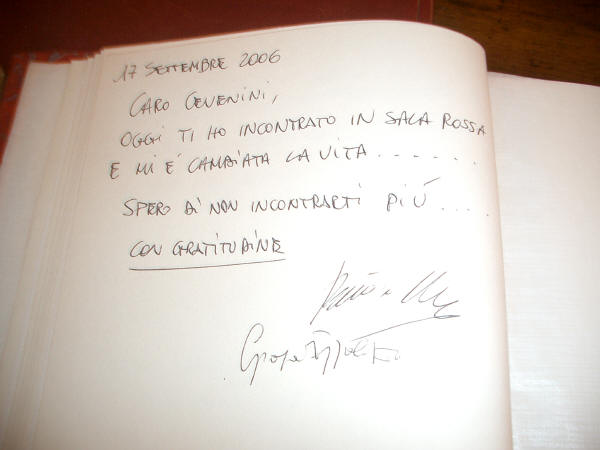 17 SETTEMBRE 2006
CARO CEVENINI,
OGGI TI HO INCONTRATO IN SALA ROSSA
E MI E' CAMBIATA LA VITA . . . . . .
SPERO DI NON INCONTRARTI PIÚ . . . .
CON GRATITUDINE